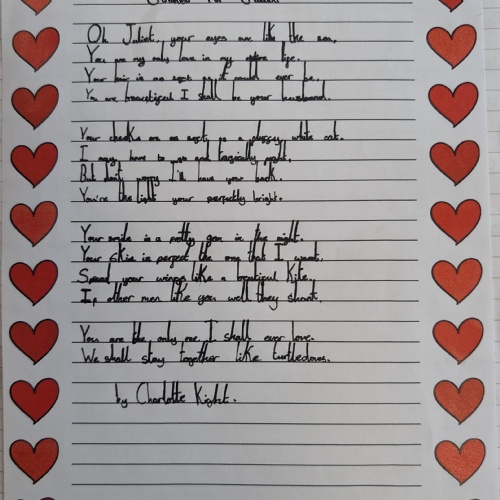 Sonnet for Juliet
Oh Juliet, your eyes are like the sea,
You are my only love in my entire life.
Your hair is as soft as it could ever be.
You are beautiful I shall be your husband.
Your cheeks are as soft as a fluffy white cat.
I may have to go and tragically fight.
But don't worry I'll have your back.
You're the light your perfectly bright.
Your smile is a pretty gem in the night.
Your skin is perfect the one that I want.
Spread your wings like a beautiful kite.
If other men like you well they shan't.
You are the only one I shall ever love.
We shall stay together like turtledoves.
by Charlotte Kight.